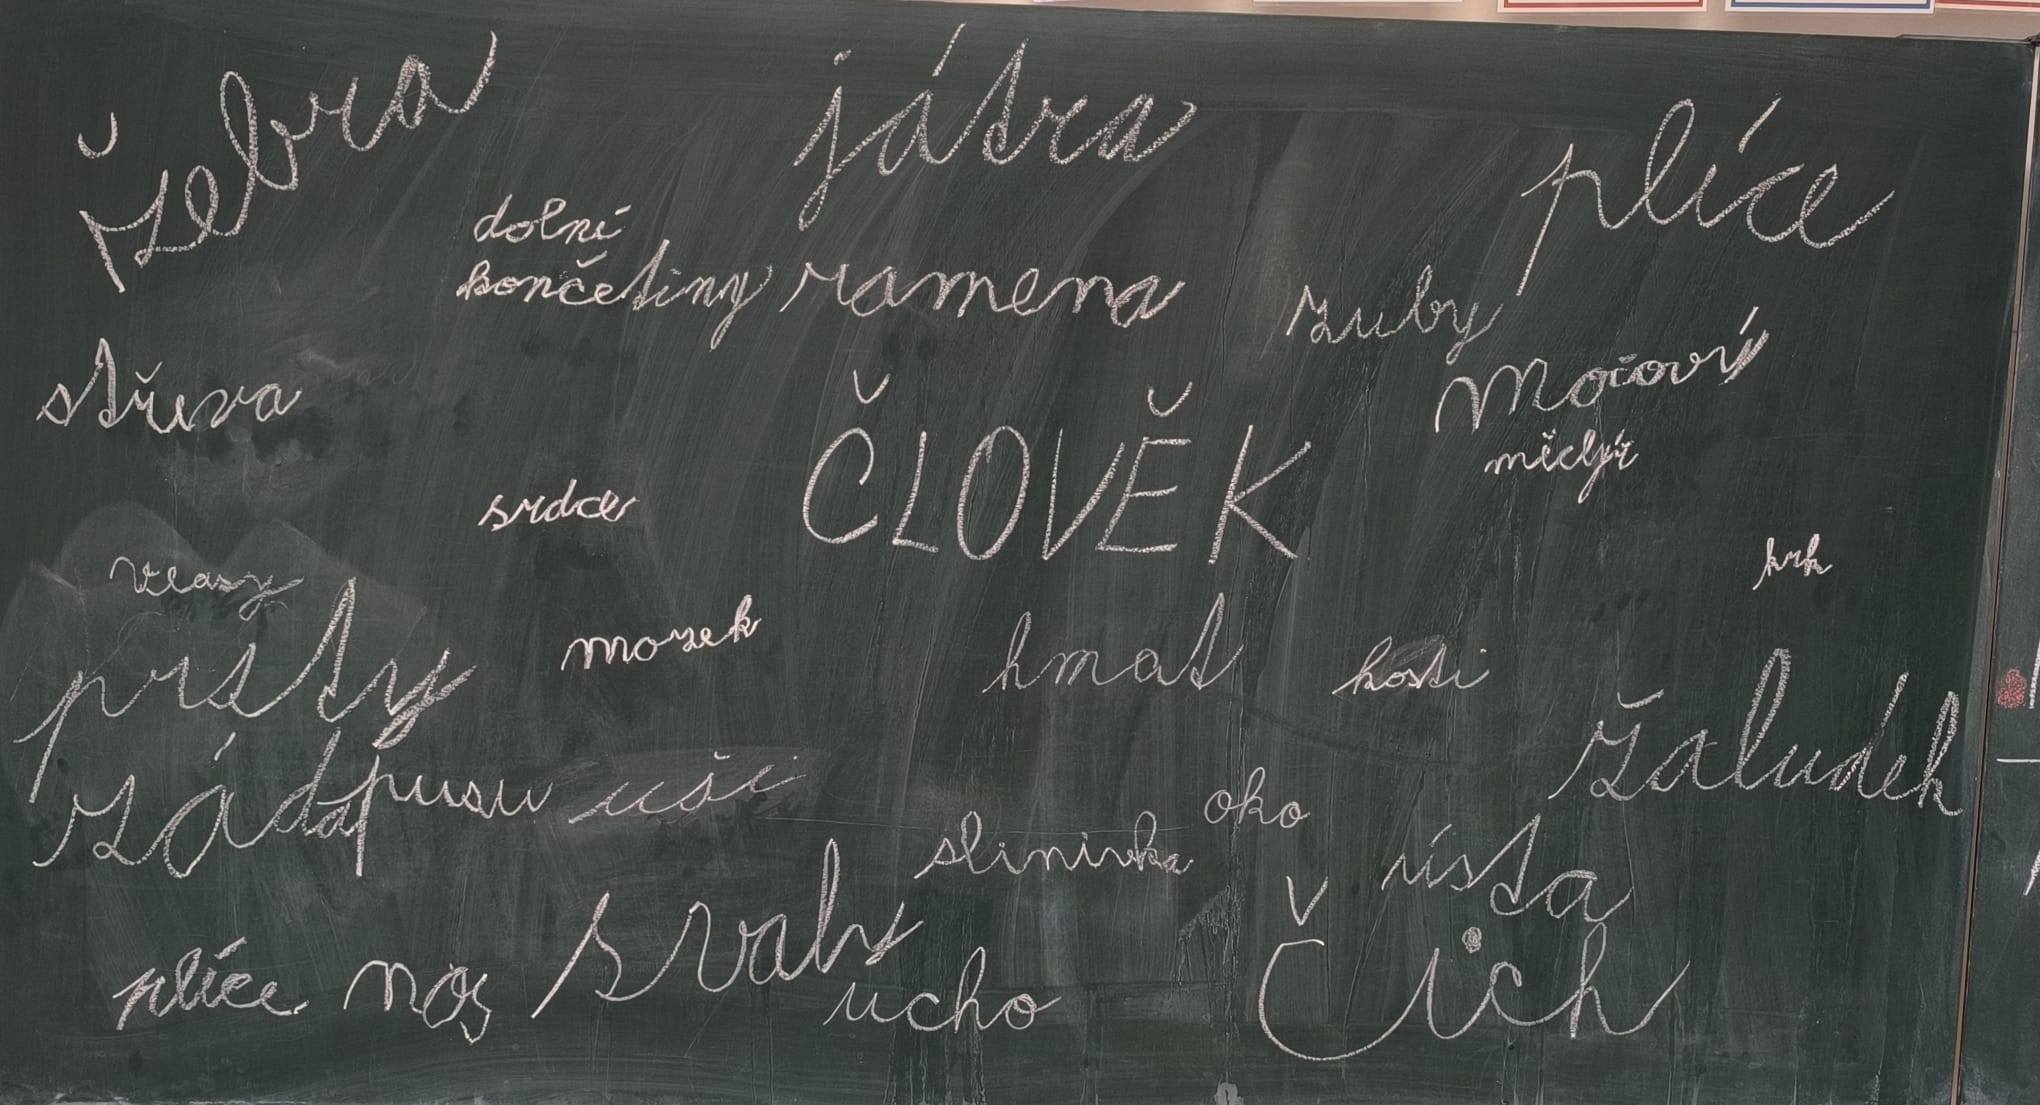 žebra
játra
plíce
dolní
končetiny
ramena
zuby
střeva
ČLOVĚK
močoví
měchýř
srdce
krk
vlasy
prsty
mozek
hmat
kosti
žaludek
záda
pusu
uši
oko
slinivka
ústa
svaly
plíce
nos
ucho
Čich